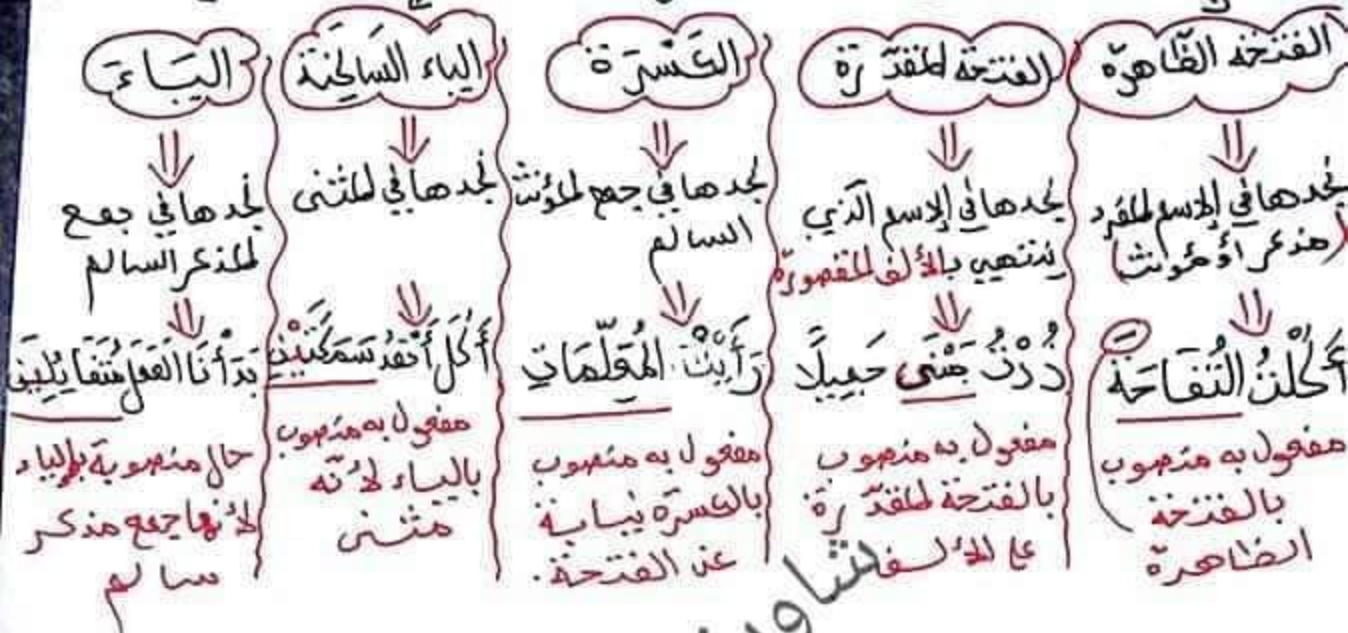 الفتحة الظاهرة
نجدها في الاسم المفرد
(مذكر أو مؤنث)
أَكَلْتُ التُّفَاحَةَ
مفعول به منصوب
بالفتحة
الظاهرة
الفتحة المقدّرة
نجدها في الاسم الذي
ينتهي بالألف المقصورة
زُرْتُ مَبْنَى جَمِيلًا
مفعول به منصوب
بالفتحة المقدّرة
على الألف
الكَسْرَة
نجدها في جمع المؤنث
السالم
رَأَيْتُ المُعَلِّمَاتِ
مفعول به منصوب
بالكسرة نيابة
عن الفتحة.
الياء السَاكِنَة
نجدها في المثنى
أَكَلَ سَمَكَتَيْنِ
مفعول به منصوب
بالياء لأنّه
مثنى
اليَاءَ
نجدها في جمع
المذكر السالم
بَدَأْنَا العَمَلَ مُتَفَائِلِينَ
حال منصوبة بالياء
لأنها جمع مذكر
سالم